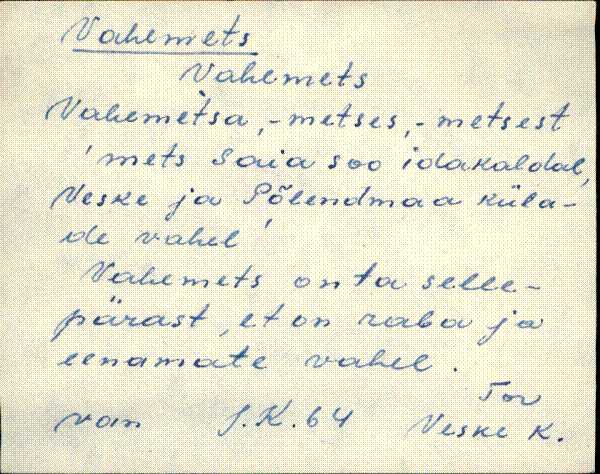 Vahemets
Vahemets
Vahemetsa, -metses, -metsest
'mets Saia soo idakaldal,
Veske ja Põlendmaa küla-
de vahel'
Vahemets on ta selle-
pärast, et on raba ja
eenamate vahel.
Tor
van J.K. 64 Veske K.